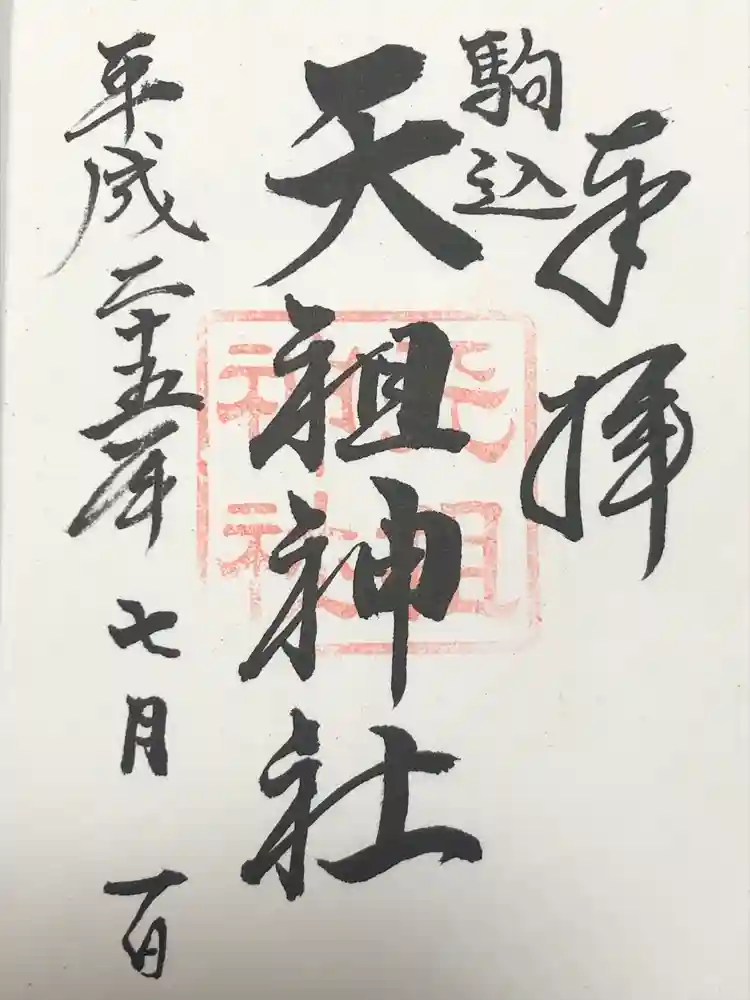 奉拝
駒込
天祖神社
天祖
神社
平成二十五年七月一日